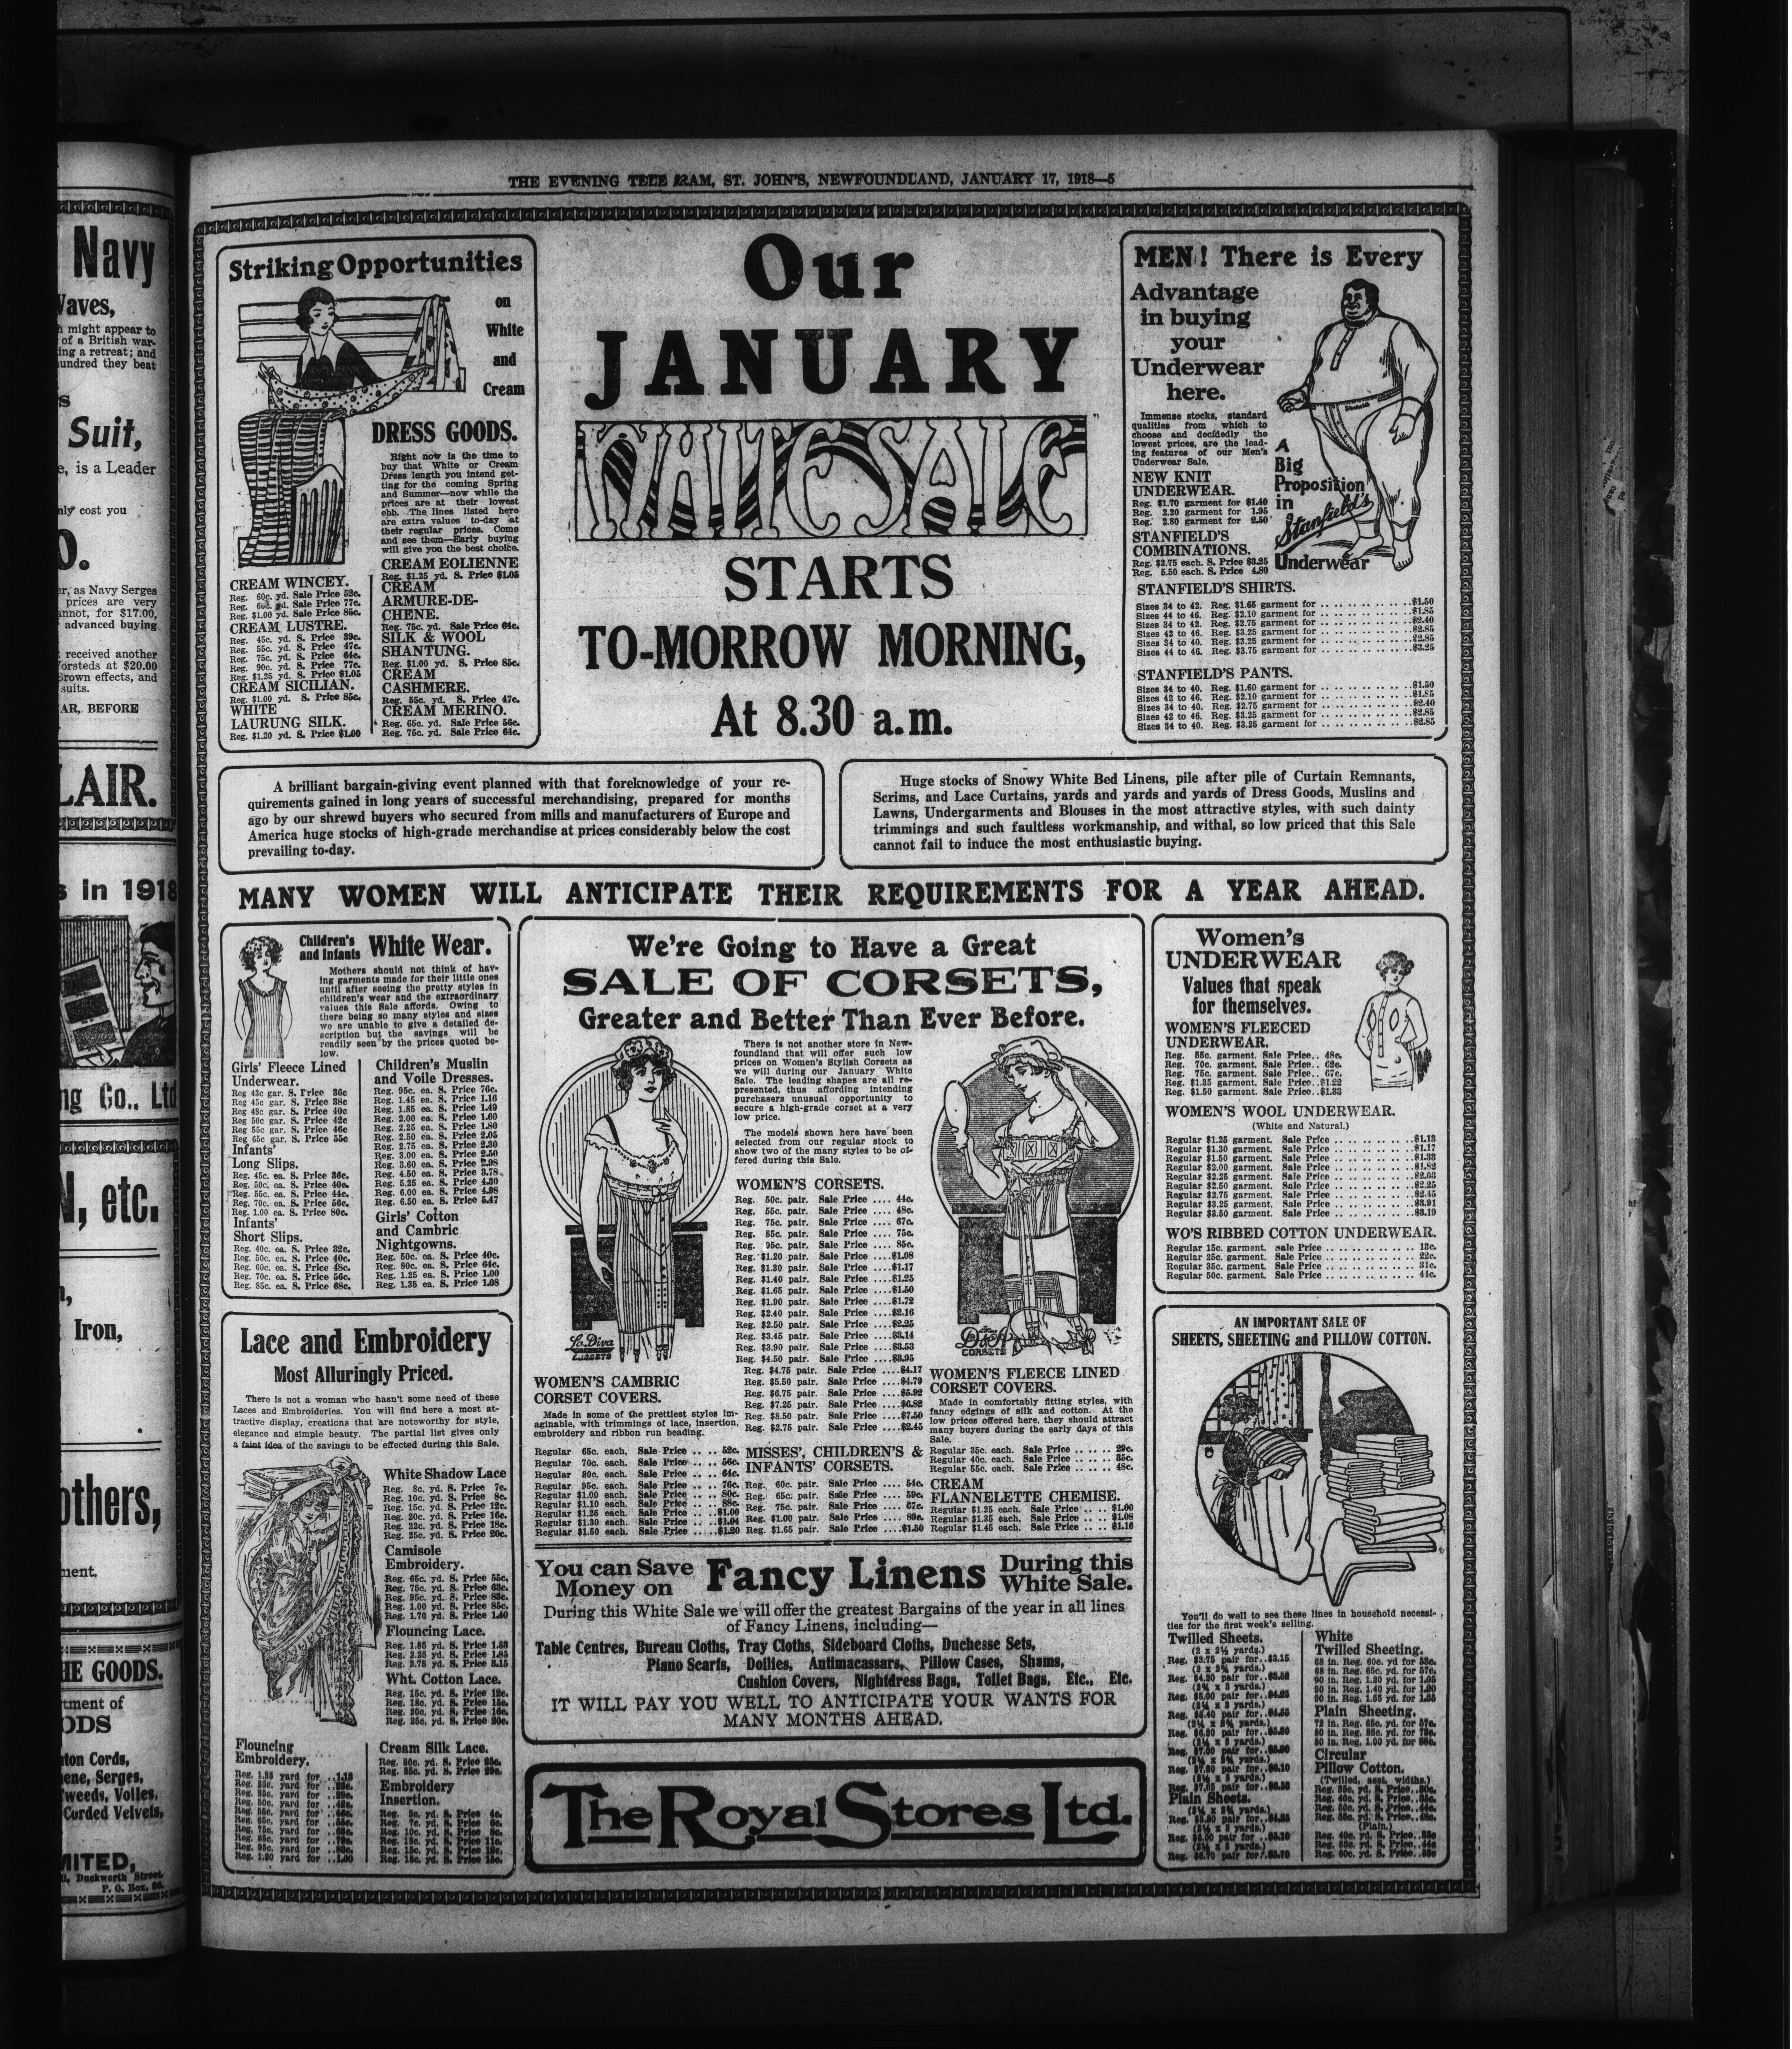 THE EVENING TELE RAM, ST. JOHN'S, NEWFOUNDLAND, JANUARY 17, 1918—5
Navy
Waves,
h might appear to
of a British war-
ing a retreat; and
hundred they beat
Suit,
e, is a Leader
nly cost you
er, as Navy Serges
prices are very
annot, for $17.00,
advanced buying
received another
Worsteds at $20.00
Brown effects, and
suits.
AR, BEFORE
LAIR.
s in 1918
ng Co., Ltd
N, etc.
Iron,
others,
ment.
HE GOODS.
rtment of
ODS
ton Cords,
ene, Serges,
Tweeds, Voiles,
Corded Velvets,
MITED,
Duckworth Street.
P. O. Box, 86.
Striking Opportunities
on
White
and
Cream
DRESS GOODS.
Right now is the time to
buy that White or Cream
Dress length you intend get-
ting for the coming Spring
and Summer—now while the
prices are at their lowest
ebb. The lines listed here
are extra values to-day at
their regular prices. Come
and see them—Early buying
will give you the best choice.
CREAM WINCEY.
Reg. 60c. yd. Sale Price 52c.
Reg. yd. Sale Price 77c.
Reg. $1.00 yd. Sale Price 85c.
CREAM LUSTRE.
Reg. 45c. yd. S. Price 39c.
Reg. 55c. yd. S. Price 47c.
Reg. 75c. yd. S. Price 64c.
Reg. 90c. yd. S. Price 77c.
Reg. $1.25 yd. S. Price $1.05
CREAM SICILIAN.
Reg. $1.00 yd. S. Price 85c.
WHITE
LAURUNG SILK.
Reg. $1.20 yd. S. Price $1.00
CREAM EOLIENNE
Reg. $1.25 yd. S. Price $1.05
CREAM
ARMURE-DE-
CHENE.
Reg. 75c. yd. Sale Price 64c.
SILK & WOOL
SHANTUNG.
Reg. $1.00 yd. S. Price 85c.
CREAM
CASHMERE.
Reg. 55c. yd. S. Price 47c.
CREAM MERINO.
Reg. 65c. yd. Sale Price 56c.
Reg. 75c. yd. Sale Price 64c.
Our
JANUARY
WHITE SALE
STARTS
TO-MORROW MORNING,
At 8.30 a.m.
MEN! There is Every
Advantage
in buying
your
Underwear
here.
Immense stocks, standard
qualities from which to
choose and decidedly the
lowest prices, are the lead-
ing features of our Men's
Underwear Sale.
NEW KNIT
UNDERWEAR.
Reg. $1.70 garment for $1.40
Reg. 2.20 garment for 1.95
Reg. 2.80 garment for 2.50
STANFIELD'S
COMBINATIONS.
Reg. $3.75 each. S. Price $3.25
Reg. 5.50 each. S. Price 4.80
A
Big
Proposition
in
Stanfield's
Underwear
STANFIELD'S SHIRTS.
Sizes 34 to 42. Reg. $1.65 garment for .. .. .. .. .. .. ..$1.50
Sizes 44 to 46. Reg. $2.10 garment for .. .. .. .. .. .. ..$1.85
Sizes 34 to 42. Reg. $2.75 garment for .. .. .. .. .. .. ..$2.40
Sizes 42 to 46. Reg. $3.25 garment for .. .. .. .. .. .. ..$2.85
Sizes 34 to 40. Reg. $3.25 garment for .. .. .. .. .. .. ..$2.85
Sizes 44 to 46. Reg. $3.75 garment for .. .. .. .. .. .. ..$3.25
STANFIELD'S PANTS.
Sizes 34 to 40. Reg. $1.60 garment for .. .. .. .. .. .. ..$1.50
Sizes 42 to 46. Reg. $2.10 garment for .. .. .. .. .. .. ..$1.85
Sizes 34 to 40. Reg. $2.75 garment for .. .. .. .. .. .. ..$2.40
Sizes 42 to 46. Reg. $3.25 garment for .. .. .. .. .. .. ..$2.85
Sizes 34 to 40. Reg. $3.25 garment for .. .. .. .. .. .. ..$2.85
A brilliant bargain-giving event planned with that foreknowledge of your re-
quirements gained in long years of successful merchandising, prepared for months
ago by our shrewd buyers who secured from mills and manufacturers of Europe and
America huge stocks of high-grade merchandise at prices considerably below the cost
prevailing to-day.
Huge stocks of Snowy White Bed Linens, pile after pile of Curtain Remnants,
Scrims, and Lace Curtains, yards and yards and yards of Dress Goods, Muslins and
Lawns, Undergarments and Blouses in the most attractive styles, with such dainty
trimmings and such faultless workmanship, and withal, so low priced that this Sale
cannot fail to induce the most enthusiastic buying.
MANY WOMEN WILL ANTICIPATE THEIR REQUIREMENTS FOR A YEAR AHEAD.
Children's
and Infants White Wear.
Mothers should not think of hav-
ing garments made for their little ones
until after seeing the pretty styles in
children's wear and the extraordinary
values this Sale affords. Owing to
there being so many styles and sizes
we are unable to give a detailed de-
scription but the savings will be
readily seen by the prices quoted be-
low.
Girls' Fleece Lined
Underwear.
Reg 43c gar. S. Price 36c
Reg 45c gar. S. Price 38c
Reg 48c gar. S. Price 40c
Reg 50c gar. S. Price 42c
Reg 55c gar. S. Price 46c
Reg 65c gar. S. Price 55c
Infants'
Long Slips.
Reg. 45c. ea. S. Price 36c.
Reg. 50c. ea. S. Price 40c.
Reg. 55c. ea. S. Price 44c.
Reg. 70c. ea. S. Price 56c.
Reg. 1.00 ea. S. Price 80c.
Infants'
Short Slips.
Reg. 40c. ea. S. Price 32c.
Reg. 50c. ea. S. Price 40c.
Reg. 60c. ea. S. Price 48c.
Reg. 70c. ea. S. Price 56c.
Reg. 85c. ea. S. Price 68c.
Children's Muslin
and Voile Dresses.
Reg. 95c. ea. S. Price 76c.
Reg. 1.45 ea. S. Price 1.16
Reg. 1.85 ea. S. Price 1.49
Reg. 2.00 ea. S. Price 1.60
Reg. 2.25 ea. S. Price 1.80
Reg. 2.50 ea. S. Price 2.05
Reg. 2.75 ea. S. Price 2.30
Reg. 3.00 ea. S. Price 2.50
Reg. 3.60 ea. S. Price 2.98
Reg. 4.50 ea. S. Price 3.78
Reg. 5.25 ea. S. Price 4.30
Reg. 6.00 ea. S. Price 4.98
Reg. 6.50 ea. S. Price 5.47
Girls' Cotton
and Cambric
Nightgowns.
Reg. 50c. ea. S. Price 40c.
Reg. 80c. ea. S. Price 64c.
Reg. 1.25 ea. S. Price 1.00
Reg. 1.35 ea. S. Price 1.08
We're Going to Have a Great
SALE OF CORSETS,
Greater and Better Than Ever Before.
There is not another store in New-
foundland that will offer such low
prices on Women's Stylish Corsets as
we will during our January White
Sale. The leading shapes are all re-
presented, thus affording intending
purchasers unusual opportunity to
secure a high-grade corset at a very
low price.
The models shown here have been
selected from our regular stock to
show two of the many styles to be of-
fered during this Sale.
WOMEN'S CORSETS.
Reg. 50c. pair. Sale Price .... 44c.
Reg. 55c. pair. Sale Price .... 48c.
Reg. 75c. pair. Sale Price .... 67c.
Reg. 85c. pair. Sale Price .... 75c.
Reg. 95c. pair. Sale Price .... 85c.
Reg. $1.20 pair. Sale Price ....$1.08
Reg. $1.30 pair. Sale Price ....$1.17
Reg. $1.40 pair. Sale Price ....$1.25
Reg. $1.65 pair. Sale Price ....$1.50
Reg. $1.90 pair. Sale Price ....$1.72
Reg. $2.40 pair. Sale Price ....$2.16
Reg. $2.50 pair. Sale Price ....$2.25
Reg. $3.45 pair. Sale Price ....$3.14
Reg. $3.90 pair. Sale Price ....$3.53
Reg. $4.50 pair. Sale Price ....$3.95
Reg. $4.75 pair. Sale Price ....$4.17
Reg. $5.50 pair. Sale Price ....$4.79
Reg. $6.75 pair. Sale Price ....$5.92
Reg. $7.25 pair. Sale Price ....$6.82
Reg. $8.50 pair. Sale Price ....$7.50
Reg. $2.75 pair. Sale Price ....$2.45
La Diva
CORSETS
D&A
CORSETS
WOMEN'S CAMBRIC
CORSET COVERS.
Made in some of the prettiest styles im-
aginable, with trimmings of lace, insertion,
embroidery and ribbon run beading.
Regular 65c. each. Sale Price .. .. 52c.
Regular 70c. each. Sale Price .. .. 56c.
Regular 80c. each. Sale Price .. .. 64c.
Regular 95c. each. Sale Price .. .. 76c.
Regular $1.00 each. Sale Price .. .. 80c.
Regular $1.10 each. Sale Price .. .. 88c.
Regular $1.25 each. Sale Price .. ..$1.00
Regular $1.30 each. Sale Price .. ..$1.04
Regular $1.50 each. Sale Price .. ..$1.20
MISSES', CHILDREN'S &
INFANTS' CORSETS.
Reg. 60c. pair. Sale Price .... 54c.
Reg. 65c. pair. Sale Price .... 59c.
Reg. 75c. pair. Sale Price .... 67c.
Reg. $1.00 pair. Sale Price .... 89c.
Reg. $1.65 pair. Sale Price ....$1.50
WOMEN'S FLEECE LINED
CORSET COVERS.
Made in comfortably fitting styles, with
fancy edgings of silk and cotton. At the
low prices offered here, they should attract
many buyers during the early days of this
Sale.
Regular 35c. each. Sale Price .. .. .. 29c.
Regular 40c. each. Sale Price .. .. .. 35c.
Regular 55c. each. Sale Price .. .. .. 48c.
CREAM
FLANNELETTE CHEMISE.
Regular $1.25 each. Sale Price .. .. $1.00
Regular $1.35 each. Sale Price .. .. $1.08
Regular $1.45 each. Sale Price .. .. $1.16
You can Save
Money on
Fancy Linens
During this
White Sale.
During this White Sale we will offer the greatest Bargains of the year in all lines
of Fancy Linens, including—
Table Centres, Bureau Cloths, Tray Cloths, Sideboard Cloths, Duchesse Sets,
Piano Scarfs, Doilies, Antimacassars, Pillow Cases, Shams,
Cushion Covers, Nightdress Bags, Toilet Bags, Etc., Etc.
IT WILL PAY YOU WELL TO ANTICIPATE YOUR WANTS FOR
MANY MONTHS AHEAD.
The Royal Stores Ltd.
Women's
UNDERWEAR
Values that speak
for themselves.
WOMEN'S FLEECED
UNDERWEAR.
Reg. 55c. garment. Sale Price.. 48c.
Reg. 70c. garment. Sale Price.. 62c.
Reg. 75c. garment. Sale Price.. 67c.
Reg. $1.35 garment. Sale Price..$1.22
Reg. $1.50 garment. Sale Price..$1.33
WOMEN'S WOOL UNDERWEAR.
(White and Natural.)
Regular $1.25 garment. Sale Price .. .. .. .. ..$1.13
Regular $1.30 garment. Sale Price .. .. .. .. ..$1.17
Regular $1.50 garment. Sale Price .. .. .. .. ..$1.33
Regular $2.00 garment. Sale Price .. .. .. .. ..$1.82
Regular $2.25 garment. Sale Price .. .. .. .. ..$2.03
Regular $2.50 garment. Sale Price .. .. .. .. ..$2.25
Regular $2.75 garment. Sale Price .. .. .. .. ..$2.45
Regular $3.25 garment. Sale Price .. .. .. .. ..$2.91
Regular $3.50 garment. Sale Price .. .. .. .. ..$3.19
WO'S RIBBED COTTON UNDERWEAR.
Regular 15c. garment. sale Price .. .. .. .. .. 12c.
Regular 25c. garment. Sale Price .. .. .. .. .. 22c.
Regular 35c. garment. Sale Price .. .. .. .. .. 31c.
Regular 50c. garment. Sale Price .. .. .. .. .. 44c.
Lace and Embroidery
Most Alluringly Priced.
There is not a woman who hasn't some need of these
Laces and Embroideries. You will find here a most at-
tractive display, creations that are noteworthy for style,
elegance and simple beauty. The partial list gives only
a faint idea of the savings to be effected during this Sale.
White Shadow Lace
Reg. 8c. yd. S. Price 7c.
Reg. 10c. yd. S. Price 8c.
Reg. 15c. yd. S. Price 12c.
Reg. 20c. yd. S. Price 16c.
Reg. 22c. yd. S. Price 18c.
Reg. 25c. yd. S. Price 20c.
Camisole
Embroidery.
Reg. 65c. yd. S. Price 55c.
Reg. 75c. yd. S. Price 63c.
Reg. 95c. yd. S. Price 83c.
Reg. 1.00 yd. S. Price 85c.
Reg. 1.70 yd. S. Price 1.40
Flouncing Lace.
Reg. 1.85 yd. S. Price 1.58
Reg. 2.25 yd. S. Price 1.85
Reg. 3.75 yd. S. Price 3.15
Wht. Cotton Lace.
Reg. 15c. yd. S. Price 12c.
Reg. 18c. yd. S. Price 15c.
Reg. 20c. yd. S. Price 16c.
Reg. 25c. yd. S. Price 20c.
Flouncing
Embroidery.
Reg. 1.35 yard for ..1.13
Reg. yard for
Reg. 35c. yard for ..29c.
Reg. 50c. yard for
Reg. 55c. yard for
Reg. 65c. yard for
Reg. 75c. yard for
Reg. 85c. yard for
Reg. 95c. yard for
Reg. 1.20 yard for ..1.00
Cream Silk Lace.
Reg. 30c. yd. S. Price 25c.
Reg. 35c. yd. S. Price 29c.
Embroidery
Insertion.
Reg. 5c. yd. S. Price 4c.
Reg. 7c. yd. S. Price 6c.
Reg. 10c. yd. S. Price 8c.
Reg. 13c. yd. S. Price 11c.
Reg. 15c. yd. S. Price 12c.
Reg. 18c. yd. S. Price 15c.
AN IMPORTANT SALE OF
SHEETS, SHEETING and PILLOW COTTON.
You'll do well to see these lines in household necessi-
ties for the first week's selling.
Twilled Sheets.
(2 x 2½ yards.)
Reg. $3.75 pair for..$3.15
(2 x 2½ yards.)
Reg. $4.20 pair for..$3.52
Reg. $5.00 pair for..$4.25
Reg. $5.40 pair for..$4.55
Reg. pair for
Reg. $7.00 pair for
Reg. pair for
Reg. pair for
Plain Sheets.
Reg. pair for
Reg. $6.00 pair for ..$5.10
Reg. $6.70 pair for..$5.70
White
Twilled Sheeting.
68 in. Reg. 60c. yd for 53c.
68 in. Reg. 65c. yd. for 57c.
90 in. Reg. 1.20 yd for 1.05
90 in. Reg. 1.40 yd for 1.20
90 in. Reg. 1.55 yd. for 1.35
Plain Sheeting.
72 in. Reg. 65c. yd. for 57c.
80 in. Reg. 85c. yd. for 73c.
80 in. Reg. 1.00 yd. for 88c.
Circular
Pillow Cotton.
(Twilled, asst. widths.)
Reg. 35c. yd. S. Price..30c.
Reg. 40c. yd. S. Price..35c.
Reg. 50c. yd. S. Price..44c.
Reg. 55c. yd. S. Price..48c.
(Plain.)
Reg. 40c. yd. S. Price..35c
Reg. 50c. yd. S. Price..44c
Reg. 60c. yd. S. Price..53c